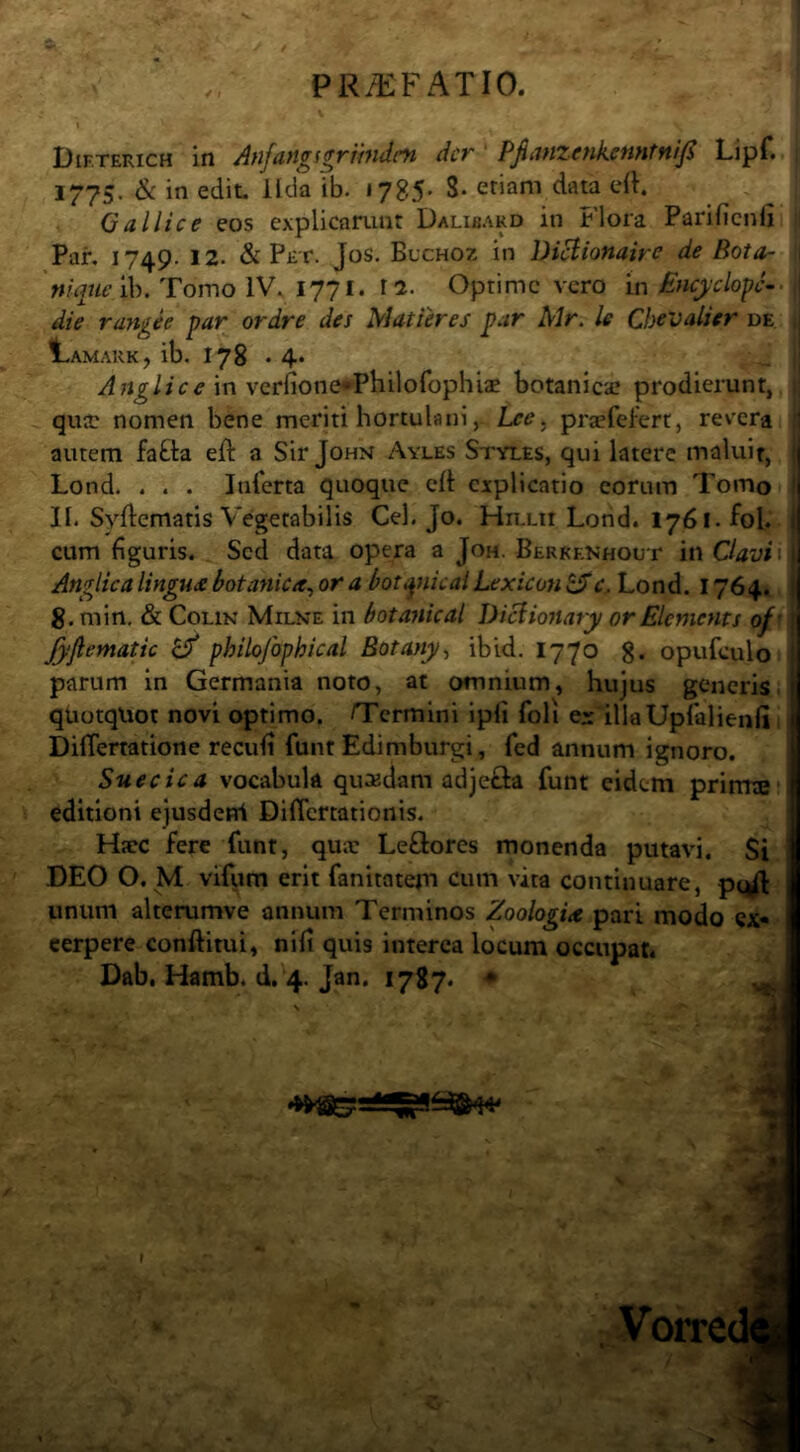 PRÆFATIO.
Dieterich in Anfangsgründen der Pflanzenkenntniß Lipſ.
1775. & in edit. IIda ib. 1785. 8. etiam data eſt.
Gallice eos explicarunt Dalibard in Flora Pariſienſi
Par. 1749. 12. & Pet. Jos. Buchoz in Dictionaire de Bota-
nique ib. Tomo IV. 1771. 12. Optime vero in Encyclopé-
die rangée par ordre des Matières par Mr. le Chevalier de
Lamark, ib. 178 . 4.
Anglice in verſione Philoſophiæ botanicæ prodierunt,
quæ nomen bene meriti hortulani, Lee, præſeſert, revera
autem facta eſt a Sir John Ayles Styles, qui latere maluit,
Lond. . . . Inſerta quoque eſt explicatio eorum Tomo
II. Syſtematis Vegetabilis Cel. Jo. Hillii Lond. 1761. fol.
cum figuris. Sed data opera a Joh. Berkenhout in Clavi
Anglica linguæ botanicæ, or a botanical Lexicon &c. Lond. 1764.
8. min. & Colin Milne in botanical Dictionary or Elements of
ſyſtematic & philoſophical Botany, ibid. 1770 8. opuſculo
parum in Germania noto, at omnium, hujus generis
quotquot novi optimo. Termini ipſi ſoli ex illa Upſalienſi
Diſſertatione recuſi ſunt Edimburgi, ſed annum ignoro.
Suecica vocabula quædam adjecta ſunt eidem primæ
editioni ejusdem Diſſertationis.
Hæc fere ſunt, quæ Lectores monenda putavi. Si
DEO O. M viſum erit ſanitatem cum vita continuare, poſt
unum alterumve annum Terminos Zoologiæ pari modo ex-
cerpere conſtitui, niſi quis interea locum occupat.
Dab. Hamb. d. 4. Jan. 1787.
Vorrede.